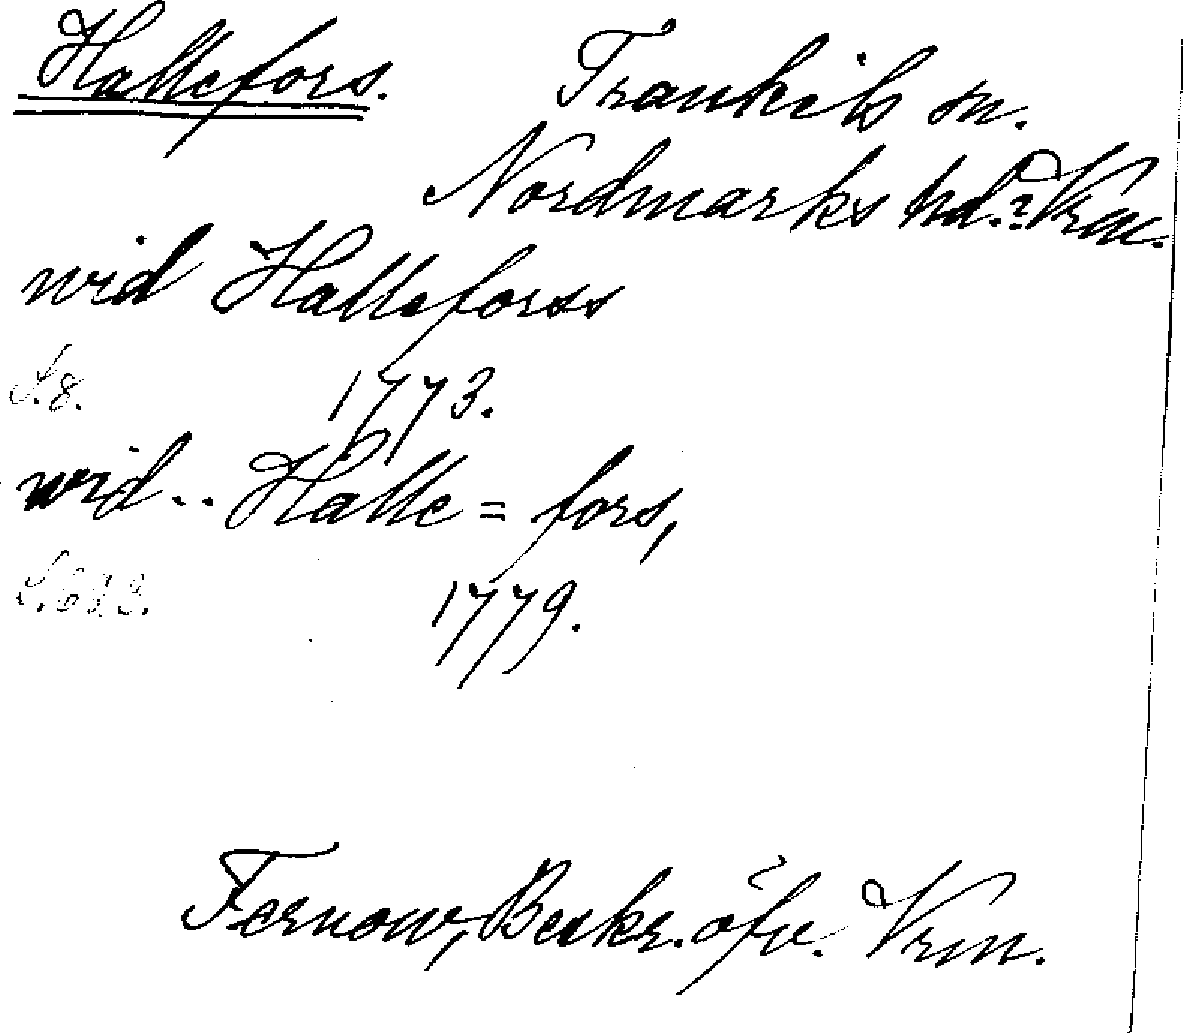 Hallefors.
Trankils sn.
Nordmarks hd. Vrm.
wid Halleforss
S. 8. 1773.
wid.. Halle = fors,
1779.
Fernow, Beskr. öfv. Vrm.